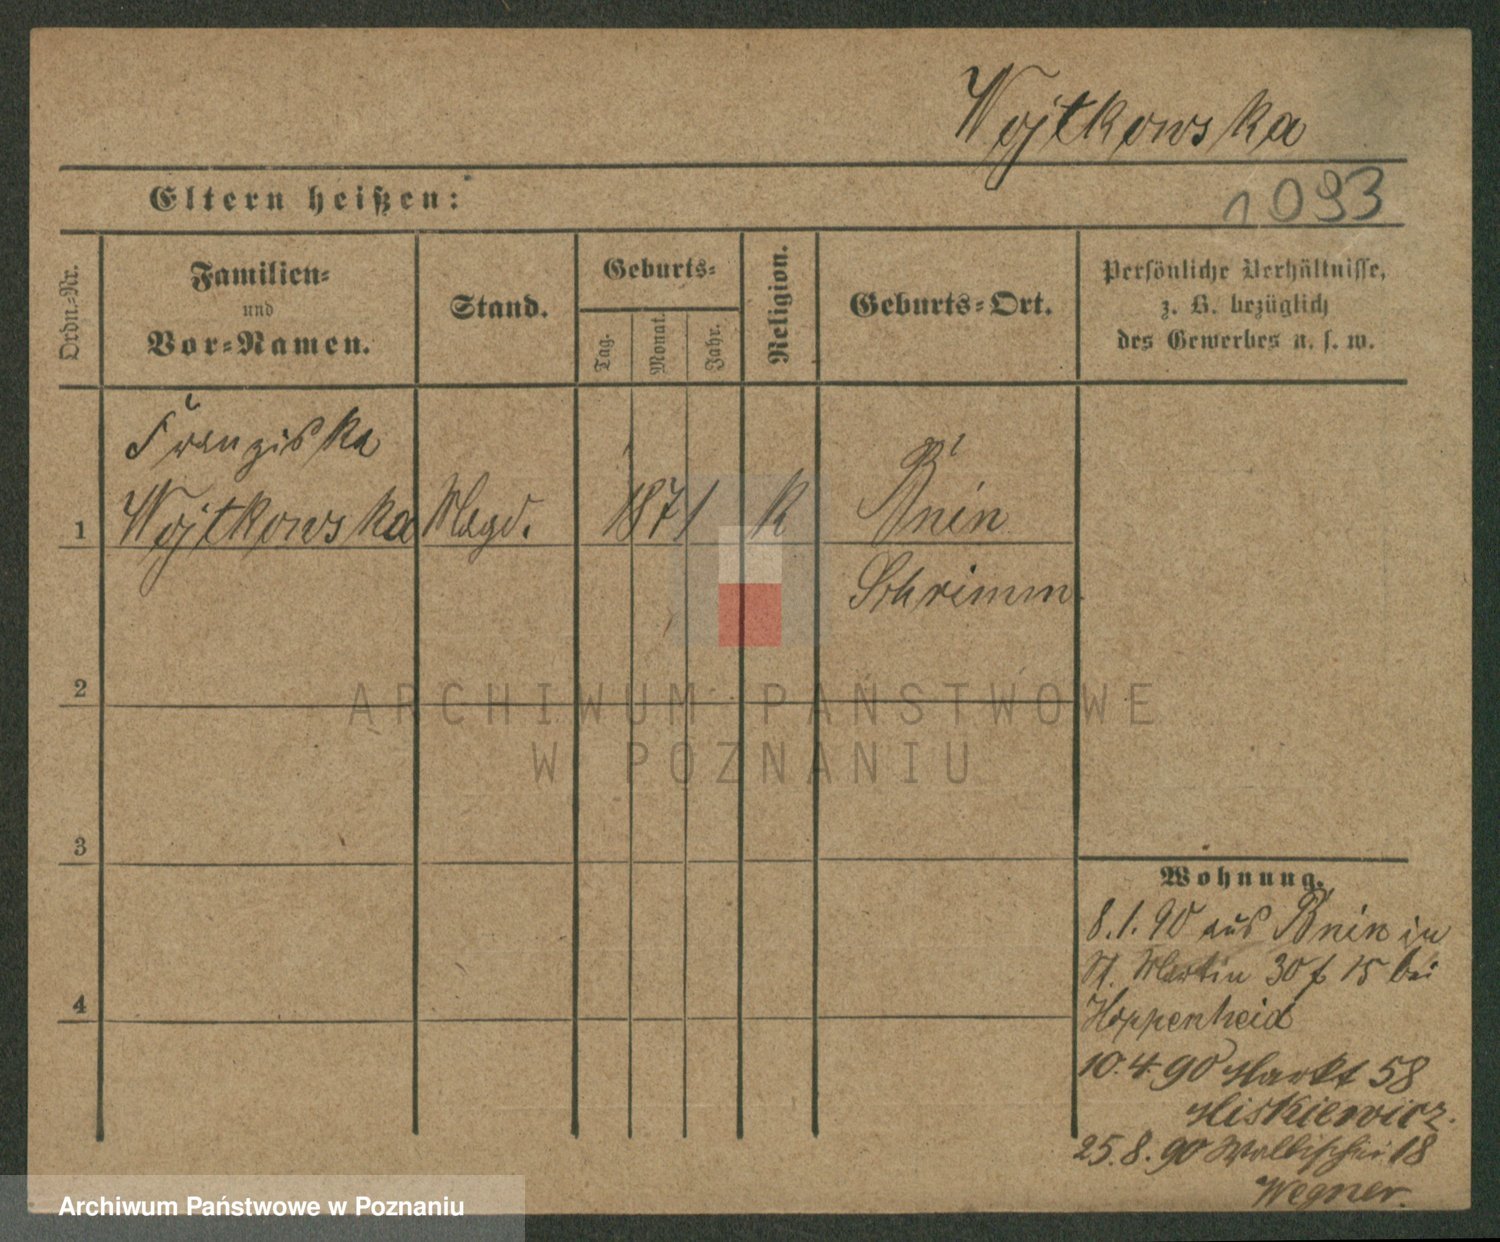 Wojtkowska
Eltern heißen:
1093
Ordn.-Nr.
Familien-
und
Vor-Namen.
Stand.
Geburts-
Tag.
Monat.
Jahr.
Religion.
Geburts-Ort.
Persönliche Verhältnisse,
z. B. bezüglich
des Gewerbes u. s. w.
Franziska
1 Wojtkowska Magd. 1871 K Bnin
Schrimm.
2
3
4
Wohnung.
8.1.90 aus Bnin in
St. Martin 30 f 15 bei
Hoppenheid
10.4.90 Markt 58
Miskiewicz.
25.8.90 Wallischei 18
Wegner.
ARCHIWUM PAŃSTWOWE
W POZNANIU
Archiwum Państwowe w Poznaniu